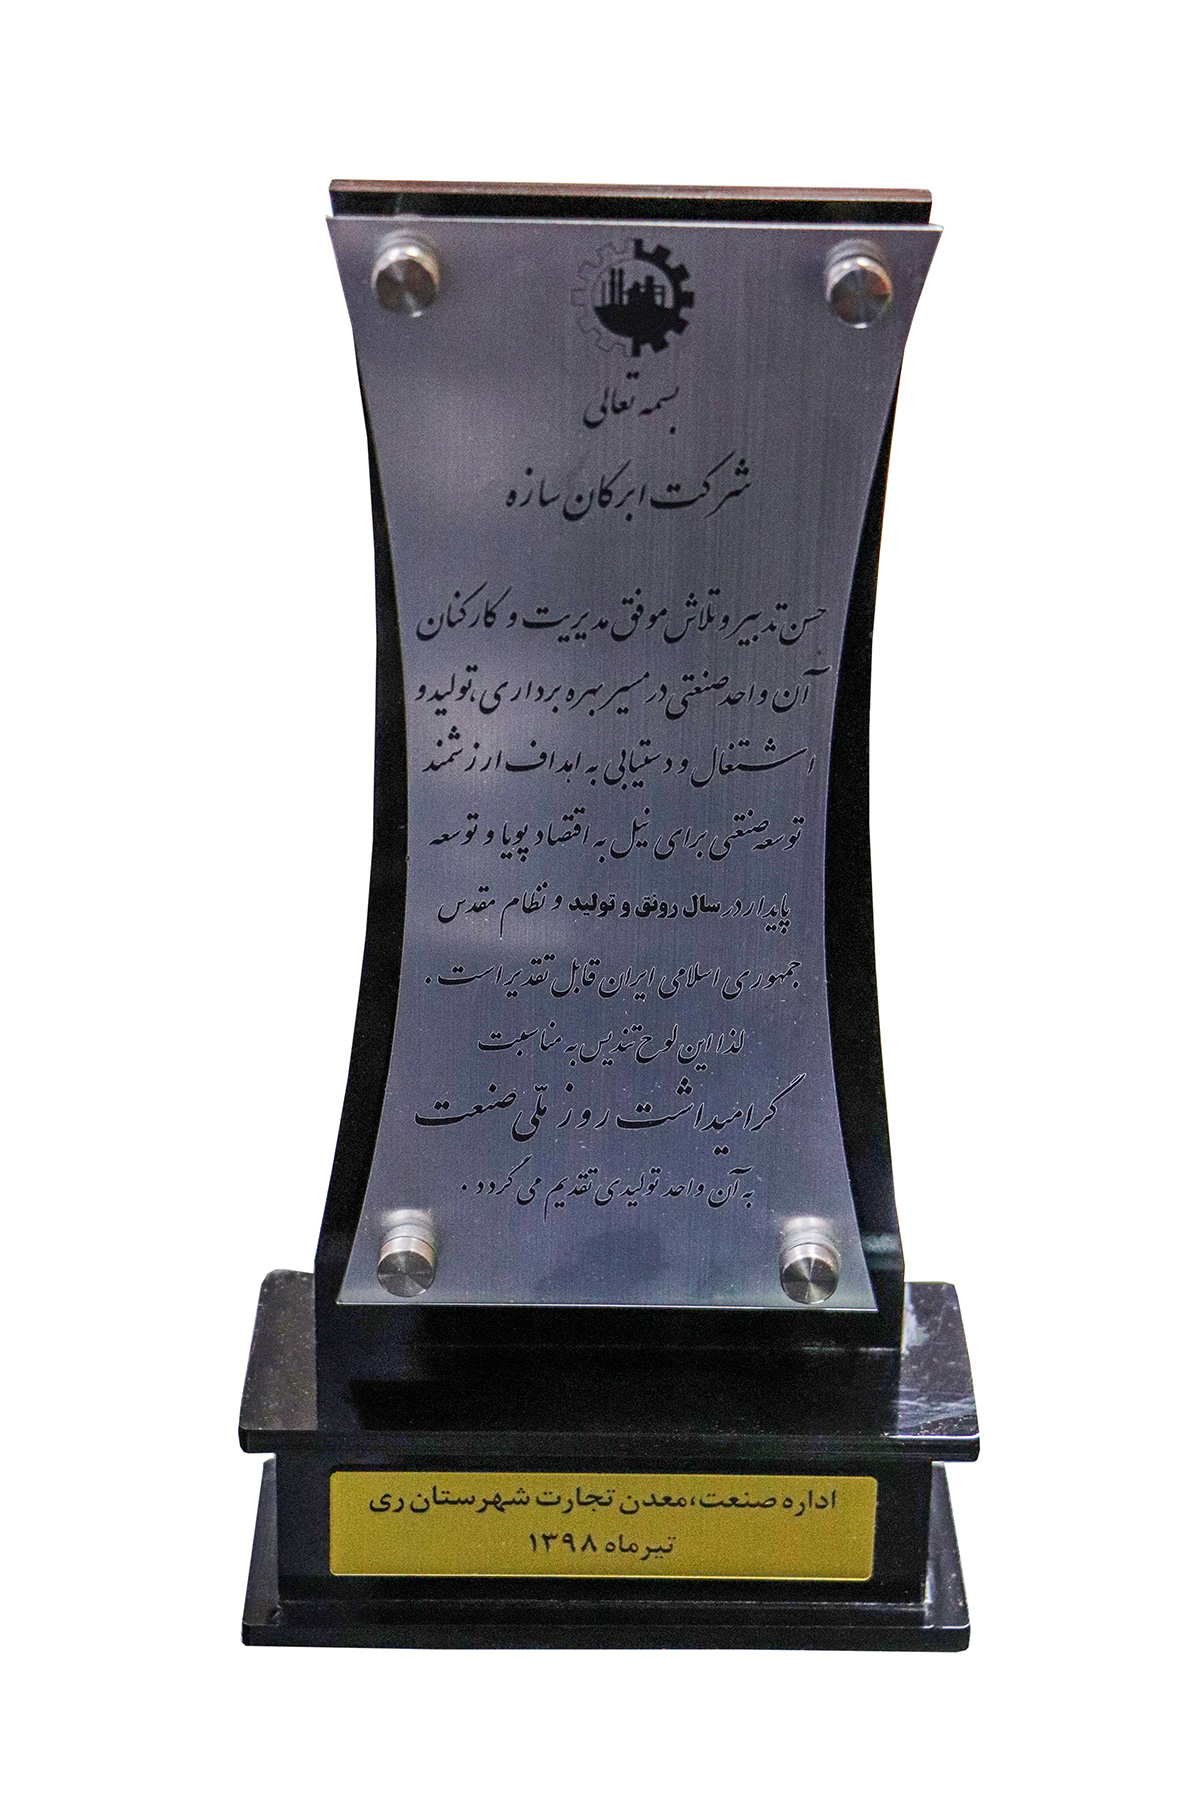 بسمه تعالی
شرکت ابرکان سازه
حسن تدبیر و تلاش موفق مدیریت و کارکنان
آن واحد صنعتی در مسیر بهره برداری، تولید و
اشتغال و دستیابی به اهداف ارزشمند
توسعه صنعتی برای نیل به اقتصاد پویا و توسعه
پایدار در سال رونق و تولید و نظام مقدس
جمهوری اسلامی ایران قابل تقدیر است .
لذا این لوح تندیس به مناسبت
گرامیداشت روز ملّی صنعت
به آن واحد تولیدی تقدیم می گردد .
اداره صنعت، معدن تجارت شهرستان ری
تیرماه ۱۳۹۸